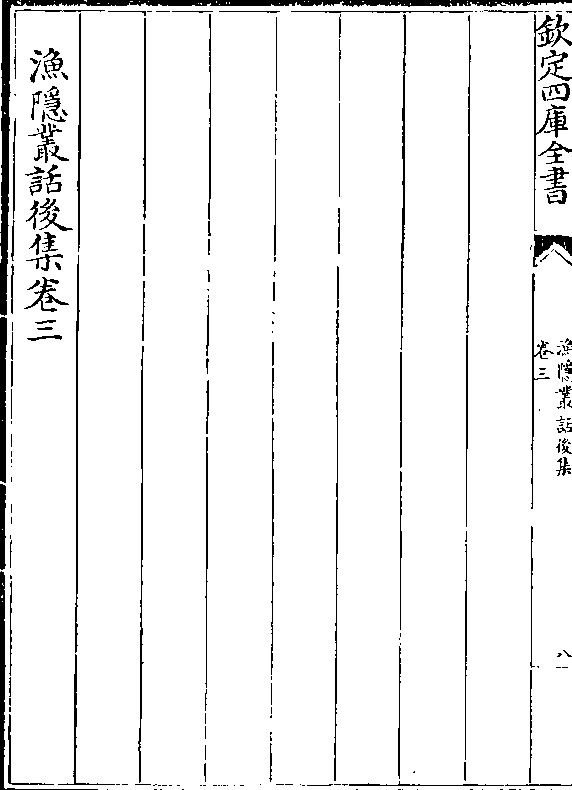 欽定四庫全書
漁隱叢話後集
卷三
八
漁隱叢話後集卷三